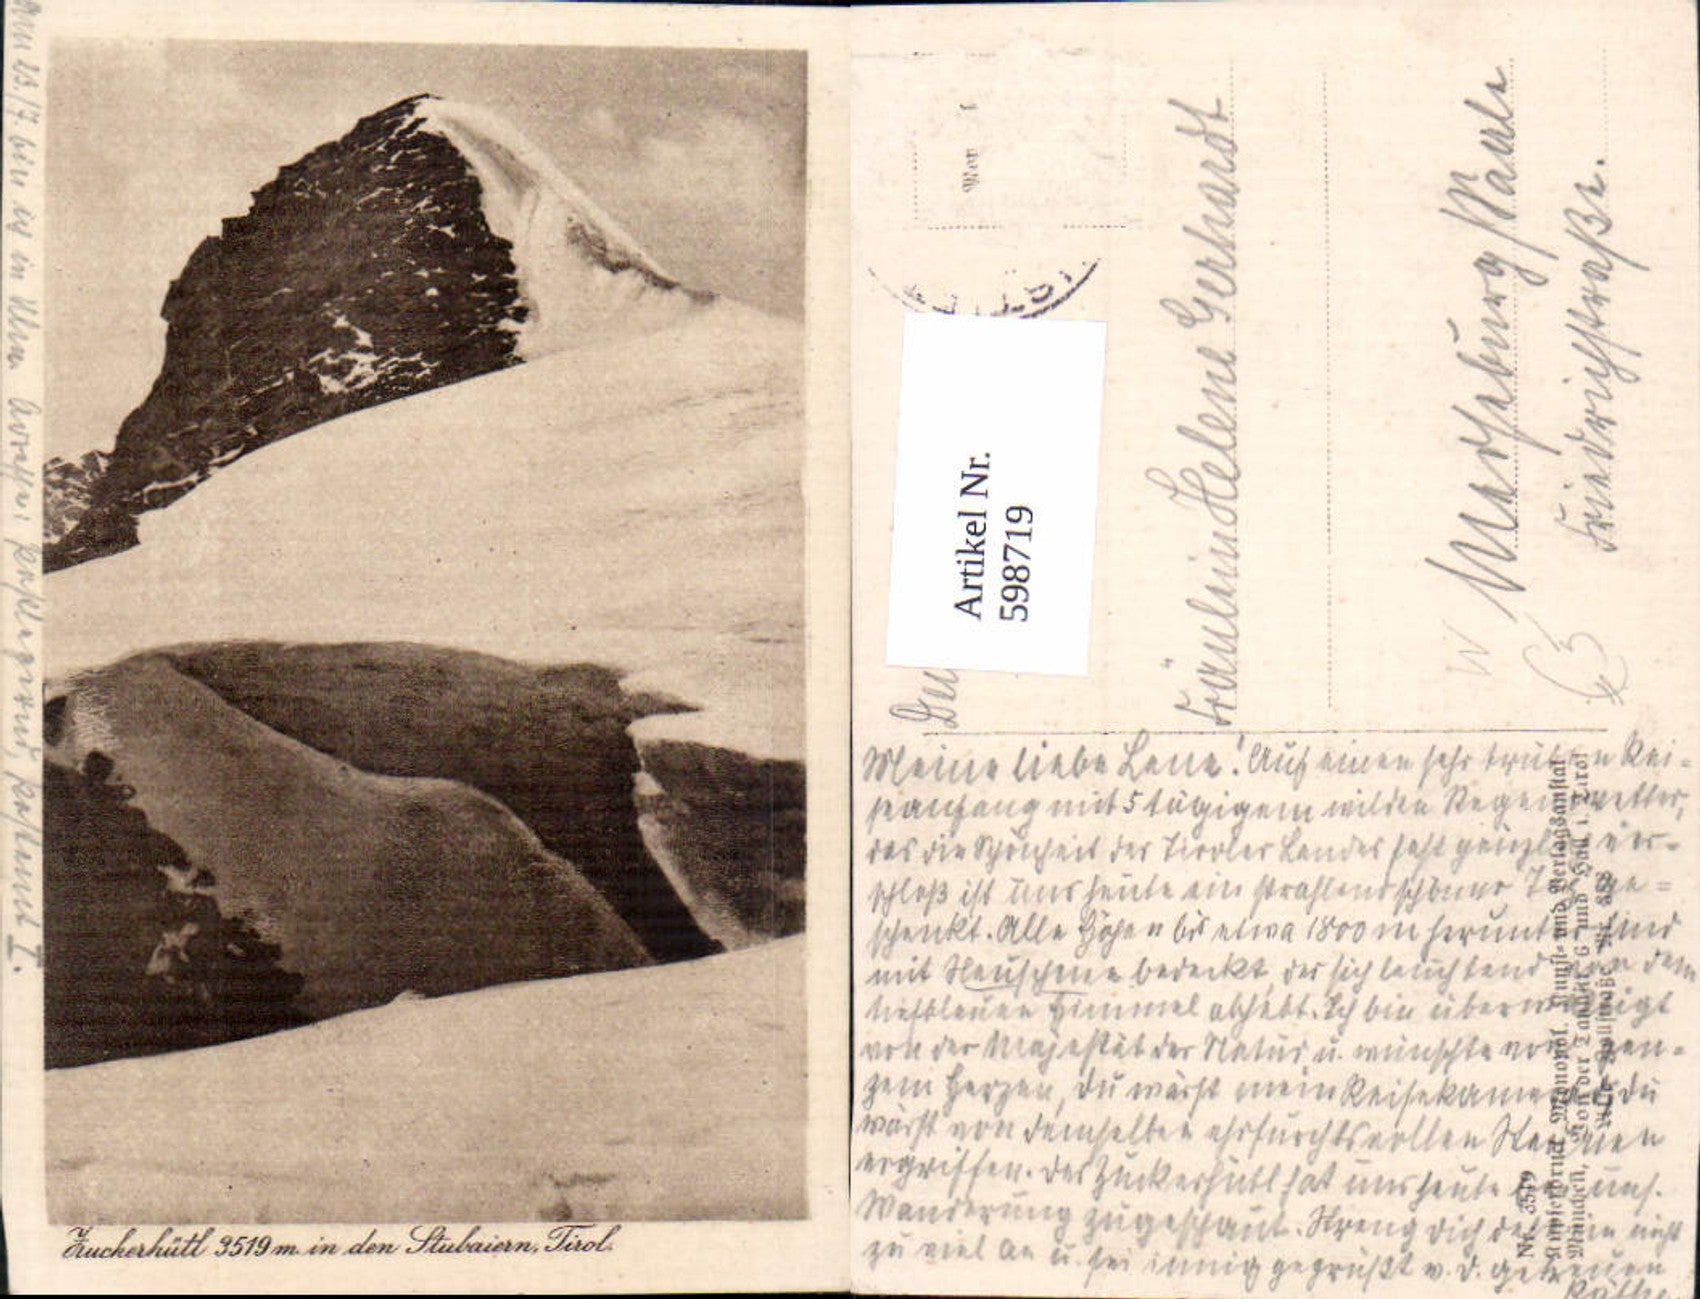 Zuckerhütl 3519 m. in den Stubaiern, Tirol.
Am 23./7. bin ich in Ulm postlagernd, Postamt I.
Artikel Nr.
598719
Fräulein Helene Gerhardt
Merseburg/Saale
Friedrichstraße.
Meine liebe Lene! Auf einen sehr trüben Rei-
seanfang mit 5 tägigem wilden Regenwetter,
das die Schönheit des Tiroler Landes fast gänzl. ver-
schloß ist uns heute ein strahlend schöner Tag ge-
schenkt. Alle Höhen bis etwa 1800 m herunter sind
mit Neuschnee bedeckt, der sich leuchtend von dem
tiefblauen Himmel abhebt. Ich bin überwältigt
von der Majestät der Natur u. wünschte von gan-
zem Herzen, du wärst mein Reisekamerad du
wärst von demselben ehrfurchtsvollen Staunen
ergriffen. Das Zuckerhütl hat uns heute
Wanderung zugeschaut. Streng dich nicht
zu viel an u. sei innig gegrüßt v. d. getreuen
Käthe.
Nr. 3519
Kupferdruck Monopol. Kunst- und Verlagsanstalt
München, und Hall i. Tirol